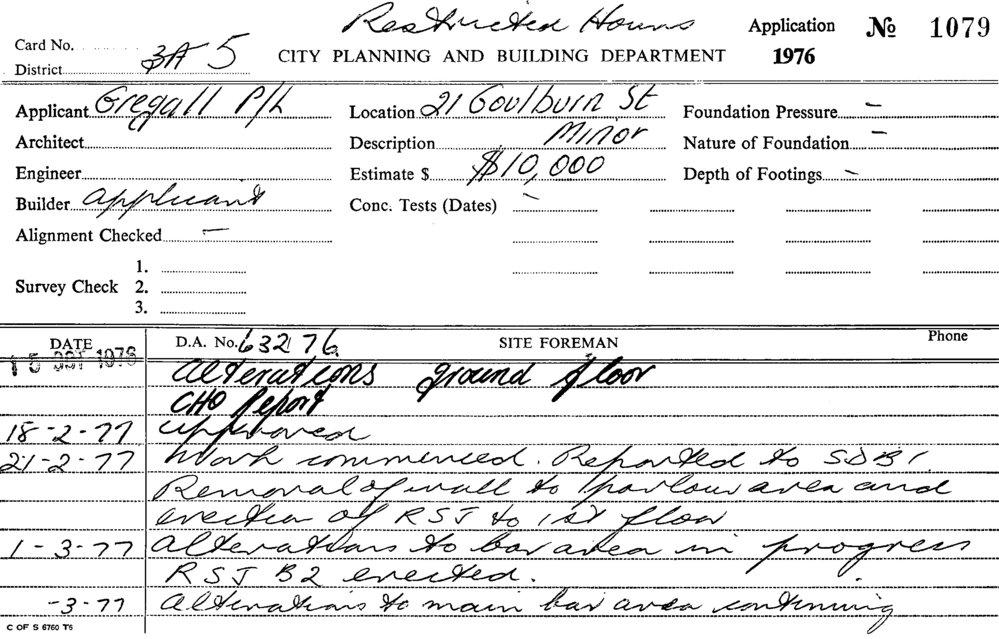 Restricted Hours
Application № 1079
Card No.
District 3A 5
CITY PLANNING AND BUILDING DEPARTMENT 1976
Applicant Gregall P/L Location 21 Goulburn St Foundation Pressure –
Architect Description Minor Nature of Foundation –
Engineer Estimate $ $10,000 Depth of Footings –
Builder applicant Conc. Tests (Dates) –
Alignment Checked –
1.
Survey Check 2.
3.
DATE D.A. No. 632 76 SITE FOREMAN Phone
15 OCT 1976 Alterations ground floor
CHO Report
18-2-77 approved
21-2-77 Work commenced. Reported to SDBI.
Removal of wall to parlour area and
erection of RSJ to 1st floor
1-3-77 Alterations to bar area in progress
RSJ B2 erected.
-3-77 Alterations to main bar area continuing
C OF S 6760 T6